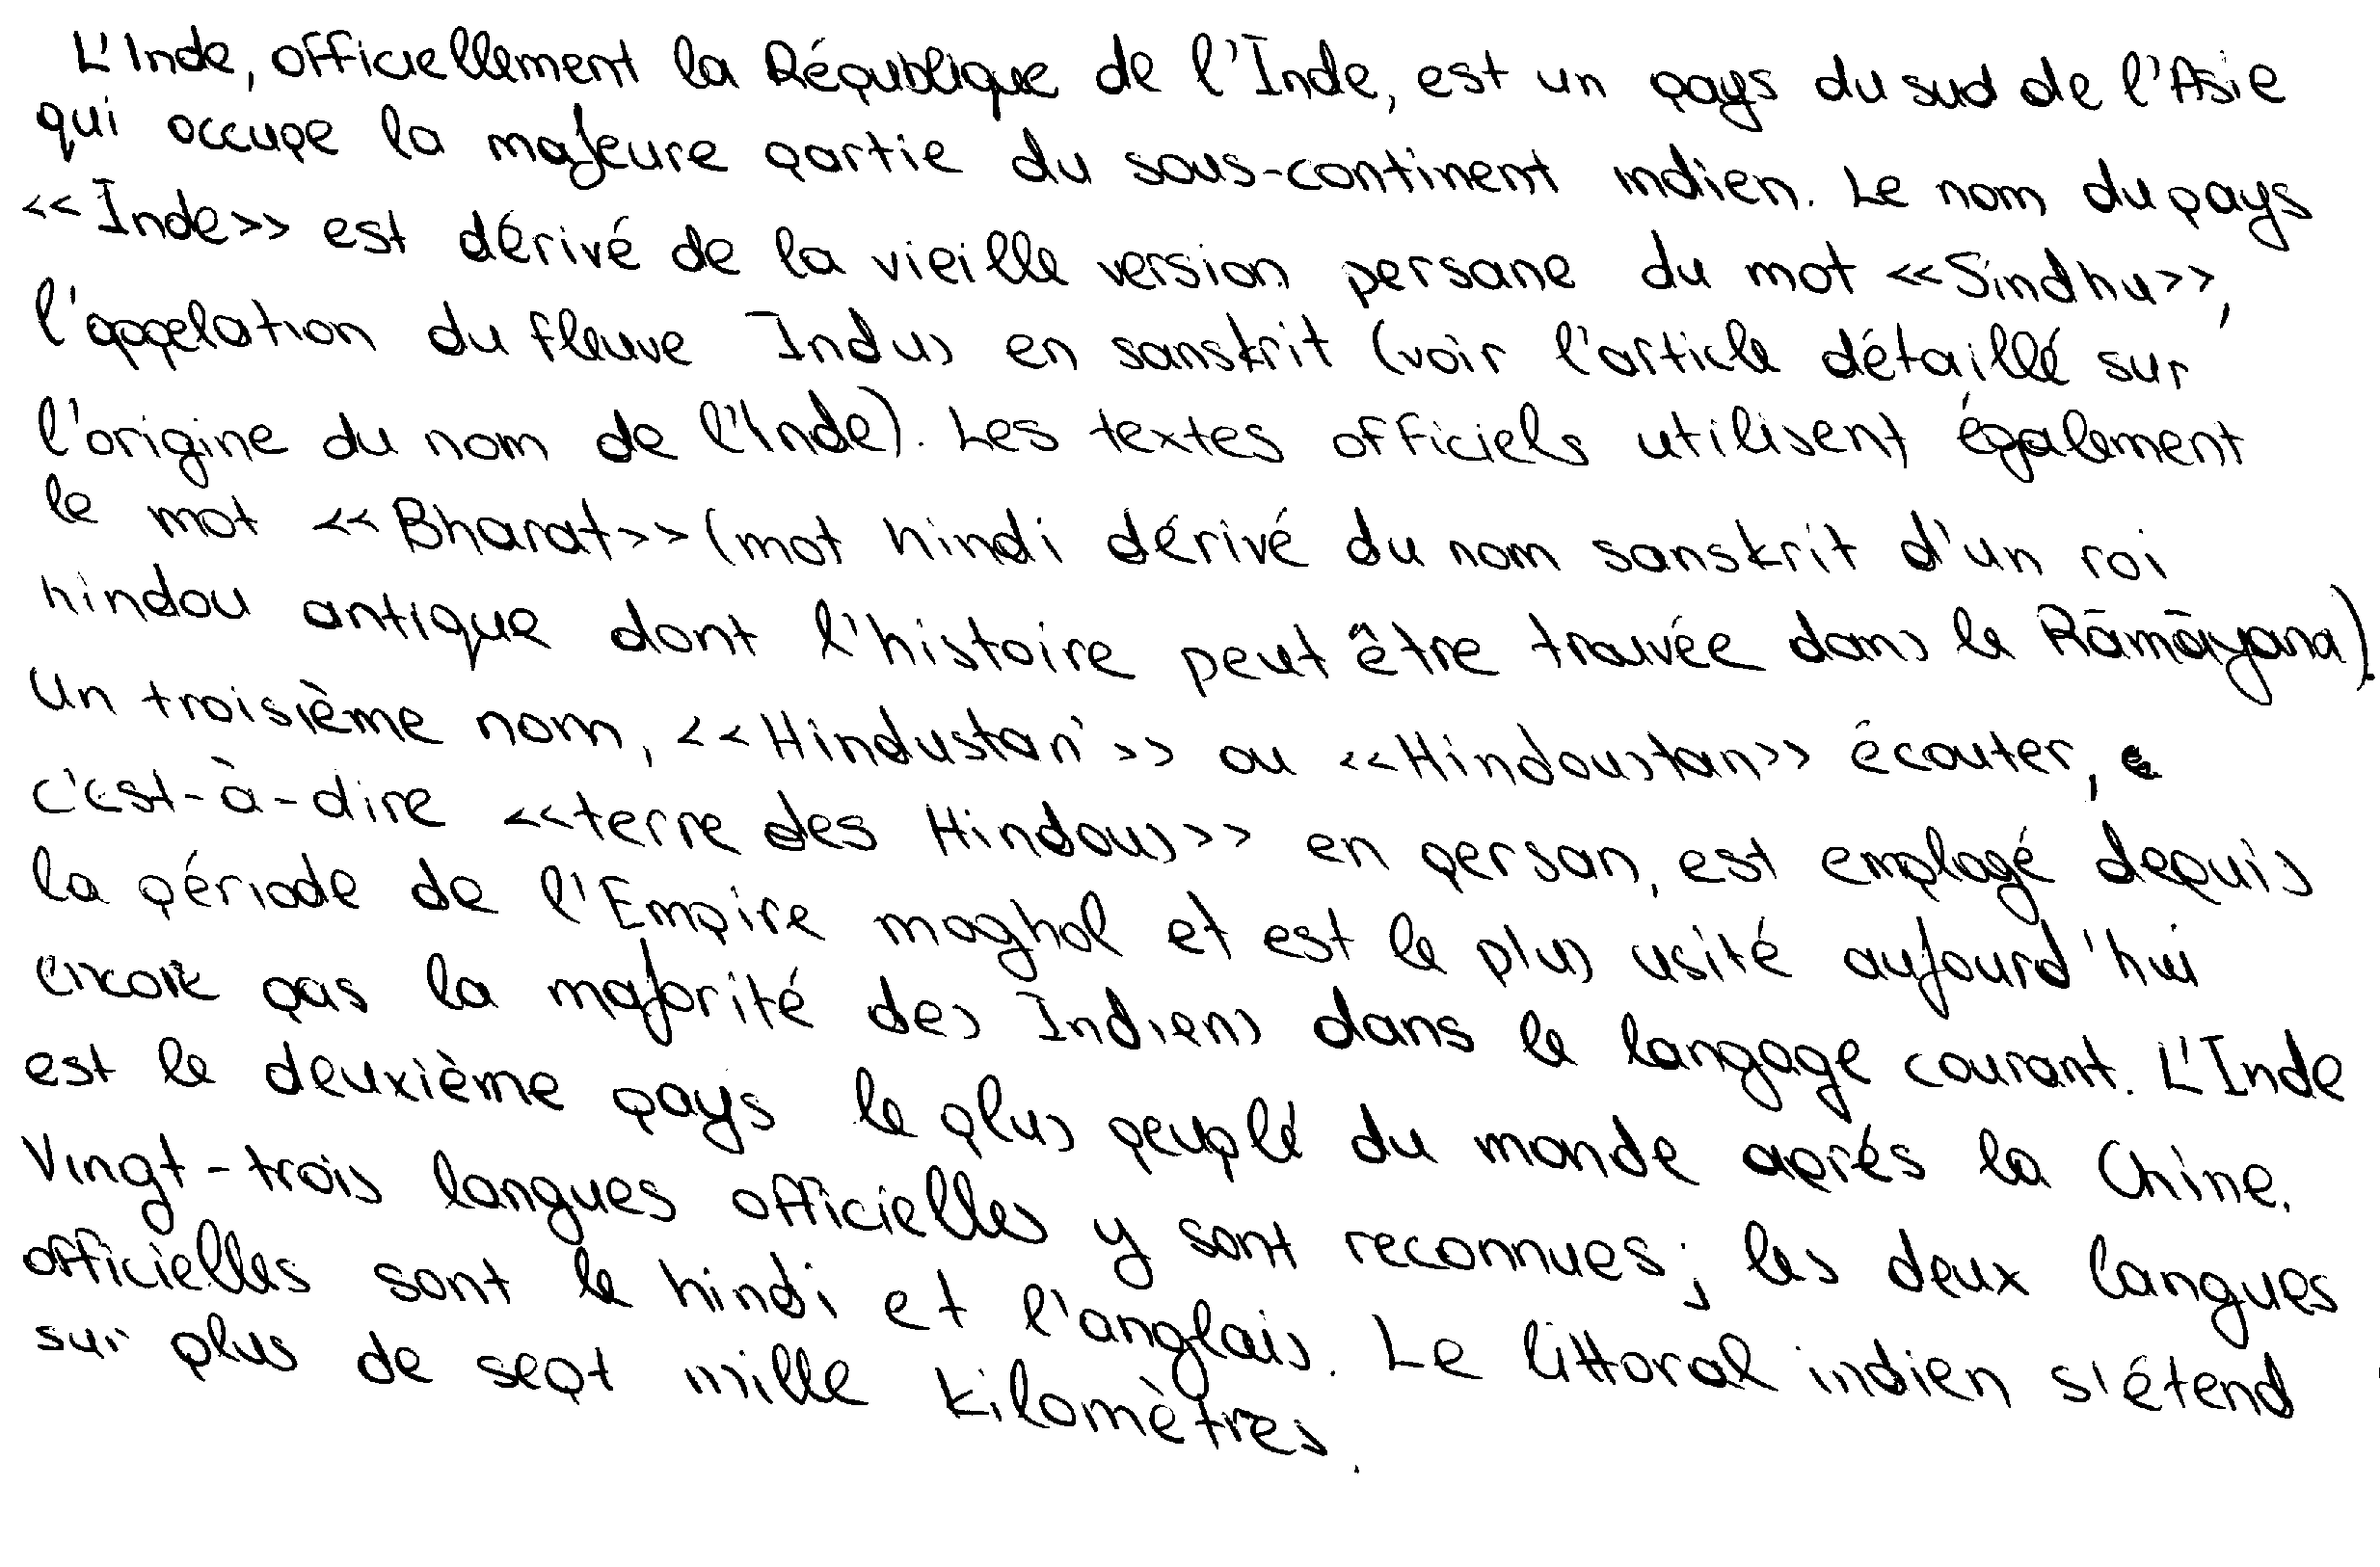 L'Inde, officiellement la République de l'Inde, est un pays du sud de l'Asie
qui occupe la majeure partie du sous-continent indien. Le nom du pays
<<Inde>> est dérivé de la vieille version persane du mot <<Sindhu>>,
l'appelation du fleuve Indus en sanskrit (voir l'article détaillé sur
l'origine du nom de l'Inde). Les textes officiels utilisent également
le mot <<Bharat>> (mot hindi dérivé du nom sanskrit d'un roi
hindou antique dont l'histoire peut être trouvée dans le Rāmāyana).
Un troisième nom, <<Hindustan>> ou <<Hindoustan>> écouter,
c'est-à-dire <<terre des Hindous>> en persan, est employé depuis
la période de l'Empire moghol et est le plus usité aujourd'hui
encore pas la majorité des Indiens dans le langage courant. L'Inde
est le deuxième pays le plus peuplé du monde après la Chine.
Vingt-trois langues officielles y sont reconnues; les deux langues
officielles sont le hindi et l'anglais. Le littoral indien s'étend
sur plus de sept mille kilomètres.